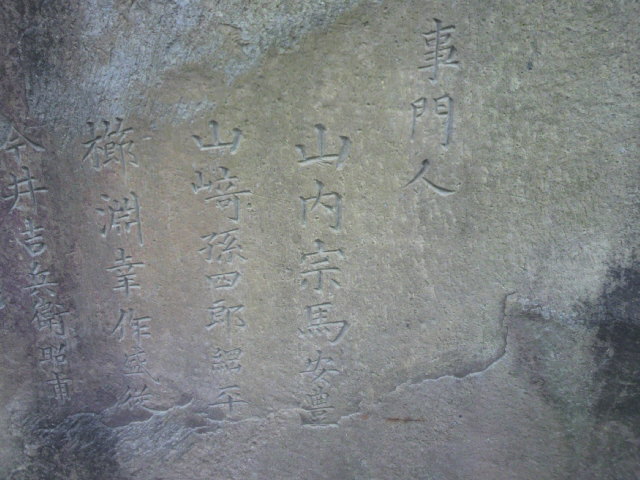 事門人
山内宗馬安豊
山﨑孫四郎紹平
櫛淵幸作盛
今井吉兵衛昭